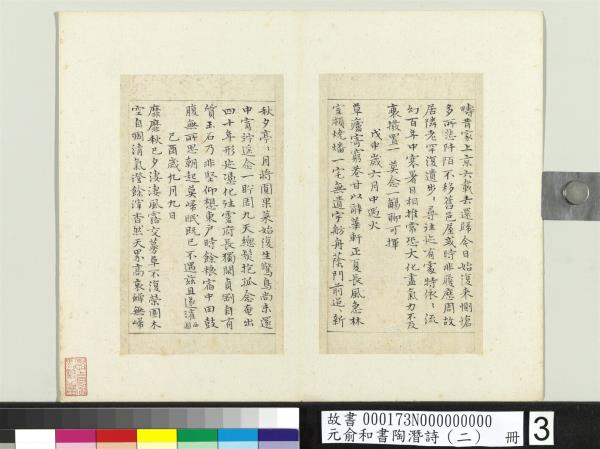 疇昔家上京六載去還歸今日始復来惻愴
多所悲阡陌不移舊邑屋或時非履歴周故
居隣老罕復遺步々尋往迹有處特依々流
幻百年中寒暑日相推常恐大化盡氣力不及
衰撥置一莫念一觴聊可揮
戊申歲六月中遇火
草廬寄窮巷甘以辭華軒正夏長風急林
室頓燒燔一宅無遺宇舫舟蔭門前迢々新
秋夕亭々月將圓果菜始復生驚鳥尚未還
中宵竚遥念一盻周九天總髮抱孤念奄出
四十年形迹憑化往靈府長獨閑貞剛自有
質玉石乃非堅仰想東戶時餘粮宿中田鼓
腹無所思朝起莫歸眠既已不遇茲且遂灌西園
己酉歲九月九日
靡靡秋已夕淒淒風露交蔓草不復榮園木
空自凋清氣澄餘滓杳然天界高哀蟬無歸
故書 000173N000000000
元俞和書陶潛詩(二) 冊
3